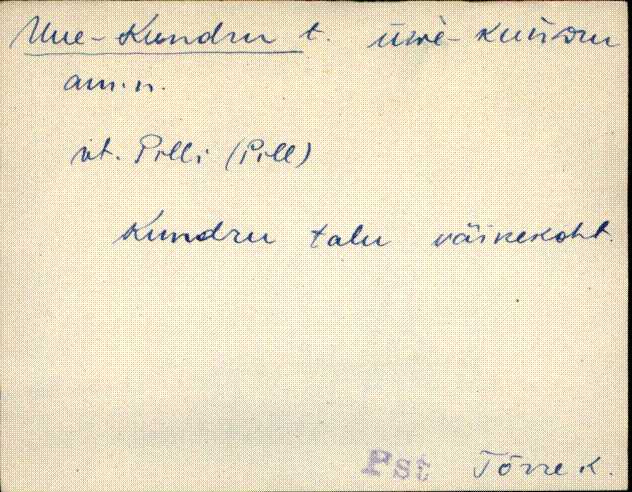 Uue-Kundru t. uwè-kuńdru
am.n.
vt. Pilli (Pill)
Kundru talu väikekoht.
Pst Tõrre k.